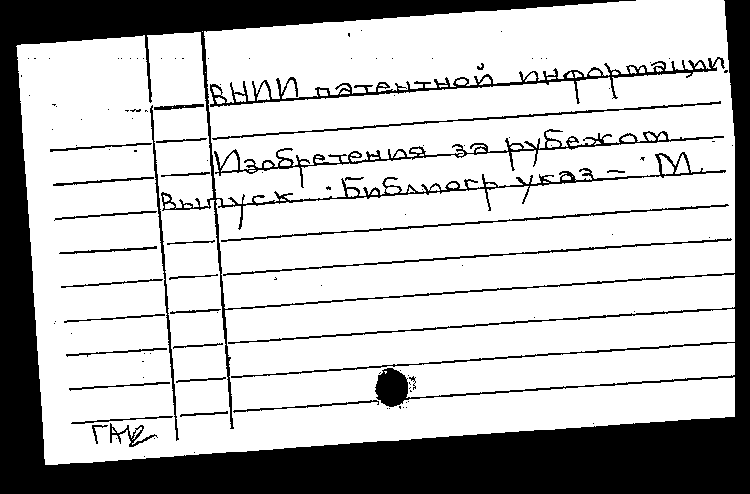 ВНИИ патентной информации
Изобретения за рубежом.
Выпуск : Библиогр указ – М.